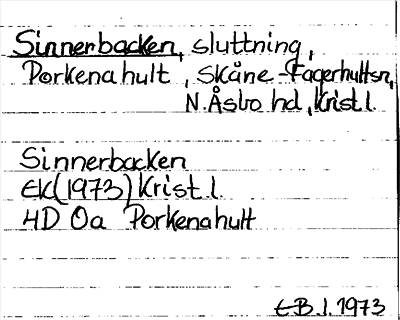 Sinnerbacken, sluttning,
Porkenahult, Skåne-Fagerhultsn,
N.Åsbo hd, Krist.l.
Sinnerbacken
EK(1973) Krist.l.
4D 0a Porkenahult
E-B.J. 1973